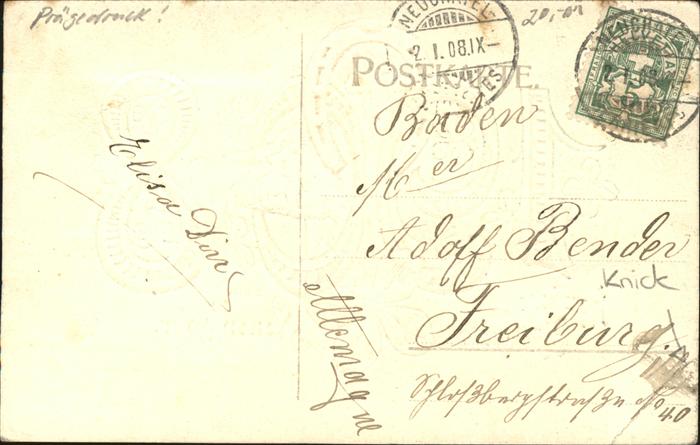 Prägedruck!
20,-
NEUCHATEL
2.I.08.IX-
POSTKARTE.
Baden
Mr er
Adolf Bender
Knick
Freiburg.
Schloßbergstraße No 40
Elisa
Allemagne